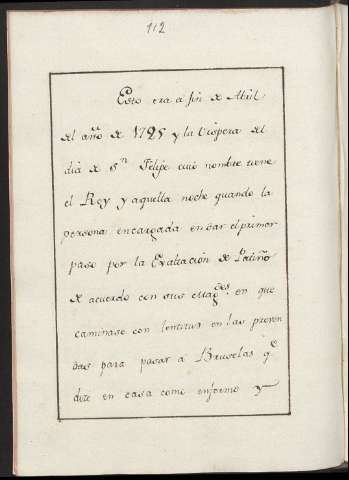 112
Esto era a fin de Abril
del año de 1725 y la Vispera del
dia de Sn Felipe cuio nombre tiene
el Rey y aquella noche quando la
persona encargada en dar el primer
paso por la Exaltacion de Patiño
de acuerdo con sus Magdes. en que
caminase con lentitud en las preven
das para pasar á Bruselas qe
dije en casa como enfermo y